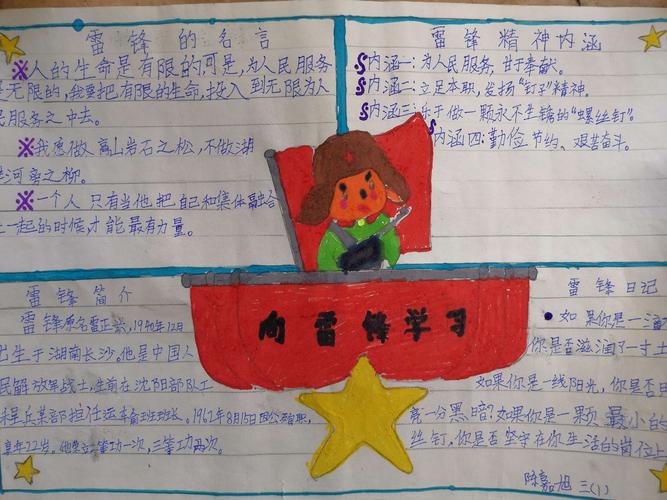 雷锋的名言
※人的生命是有限的可是,为人民服务
是无限的,我要把有限的生命,投入到无限为人
民服务之中去。
※我愿做高山岩石之松,不做湖
河旁之柳。
※一个人只有当他把自己和集体融合
一起的时候,才能最有力量。
雷锋精神内涵
内涵一:为人民服务,甘于奉献。
内涵二:立足本职,发扬“钉子”精神。
内涵三:乐于做一颗永不生锈的“螺丝钉”。
内涵四:勤俭节约、艰苦奋斗。
向雷锋学习
雷锋简介
雷锋原名雷正兴,1940年12月
出生于湖南长沙,他是中国人
民解放军战士,生前在沈阳部队工
程兵某部担任运输班班长。1962年8月15日因公殉职,
享年22岁。他荣立二等功一次,三等功两次。
雷锋日记
如果你是一滴
你是否滋润了一寸土
如果你是一线阳光,你是否
亮一分黑暗?如果你是一颗最小的
丝钉,你是否坚守在你生活的岗位上
陈嘉旭 三(1)